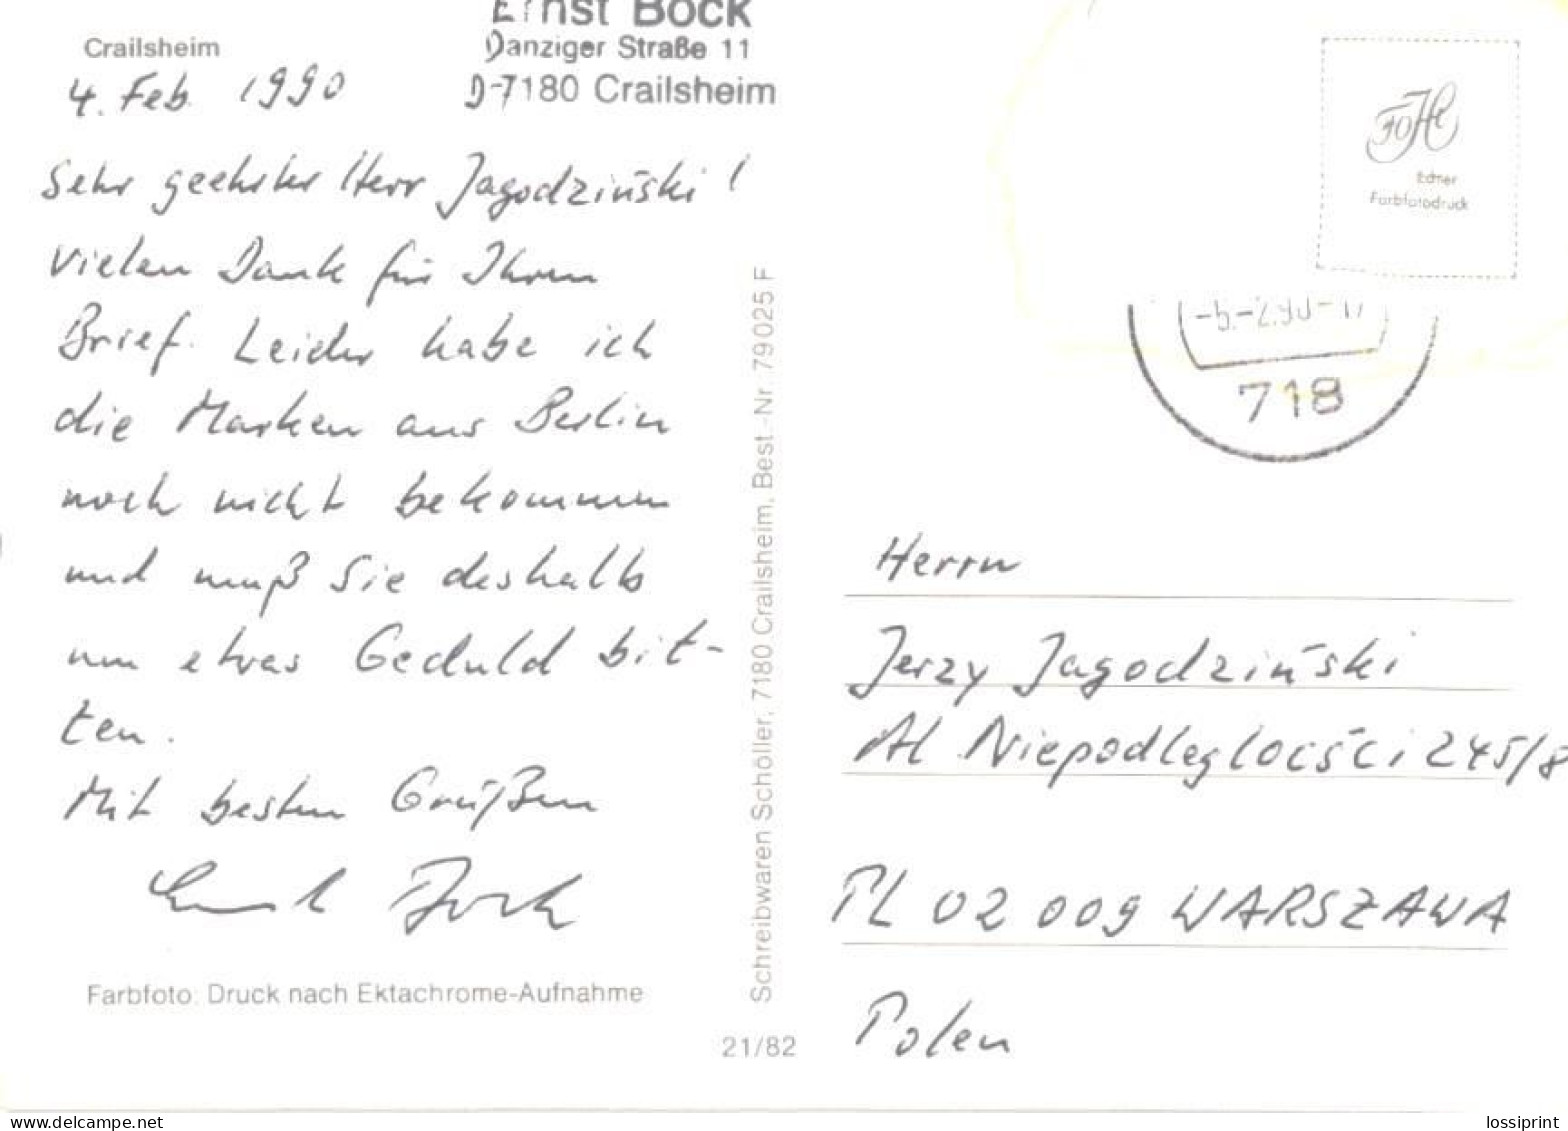 Crailsheim
4. Feb. 1990
Ernst Bock
Danziger Straße 11
D-7180 Crailsheim
Sehr geehrter Herr Jagodziński!
Vielen Dank für Ihren
Brief. Leider habe ich
die Marken aus Berlin
noch nicht bekommen
und muß Sie deshalb
um etwas Geduld bit-
ten.
Mit besten Grüßen
Ernst Bock
Farbfoto: Druck nach Ektachrome-Aufnahme
Schreibwaren Schöller, 7180 Crailsheim, Best.-Nr. 79 025 F
21/82
Farbfotodruck
-5.-2.90-17
718
Herrn
Jerzy Jagodziński
Al Niepodległości 245/8
PL 02 009 WARSZAWA
Polen
www.delcampe.net
lossiprint